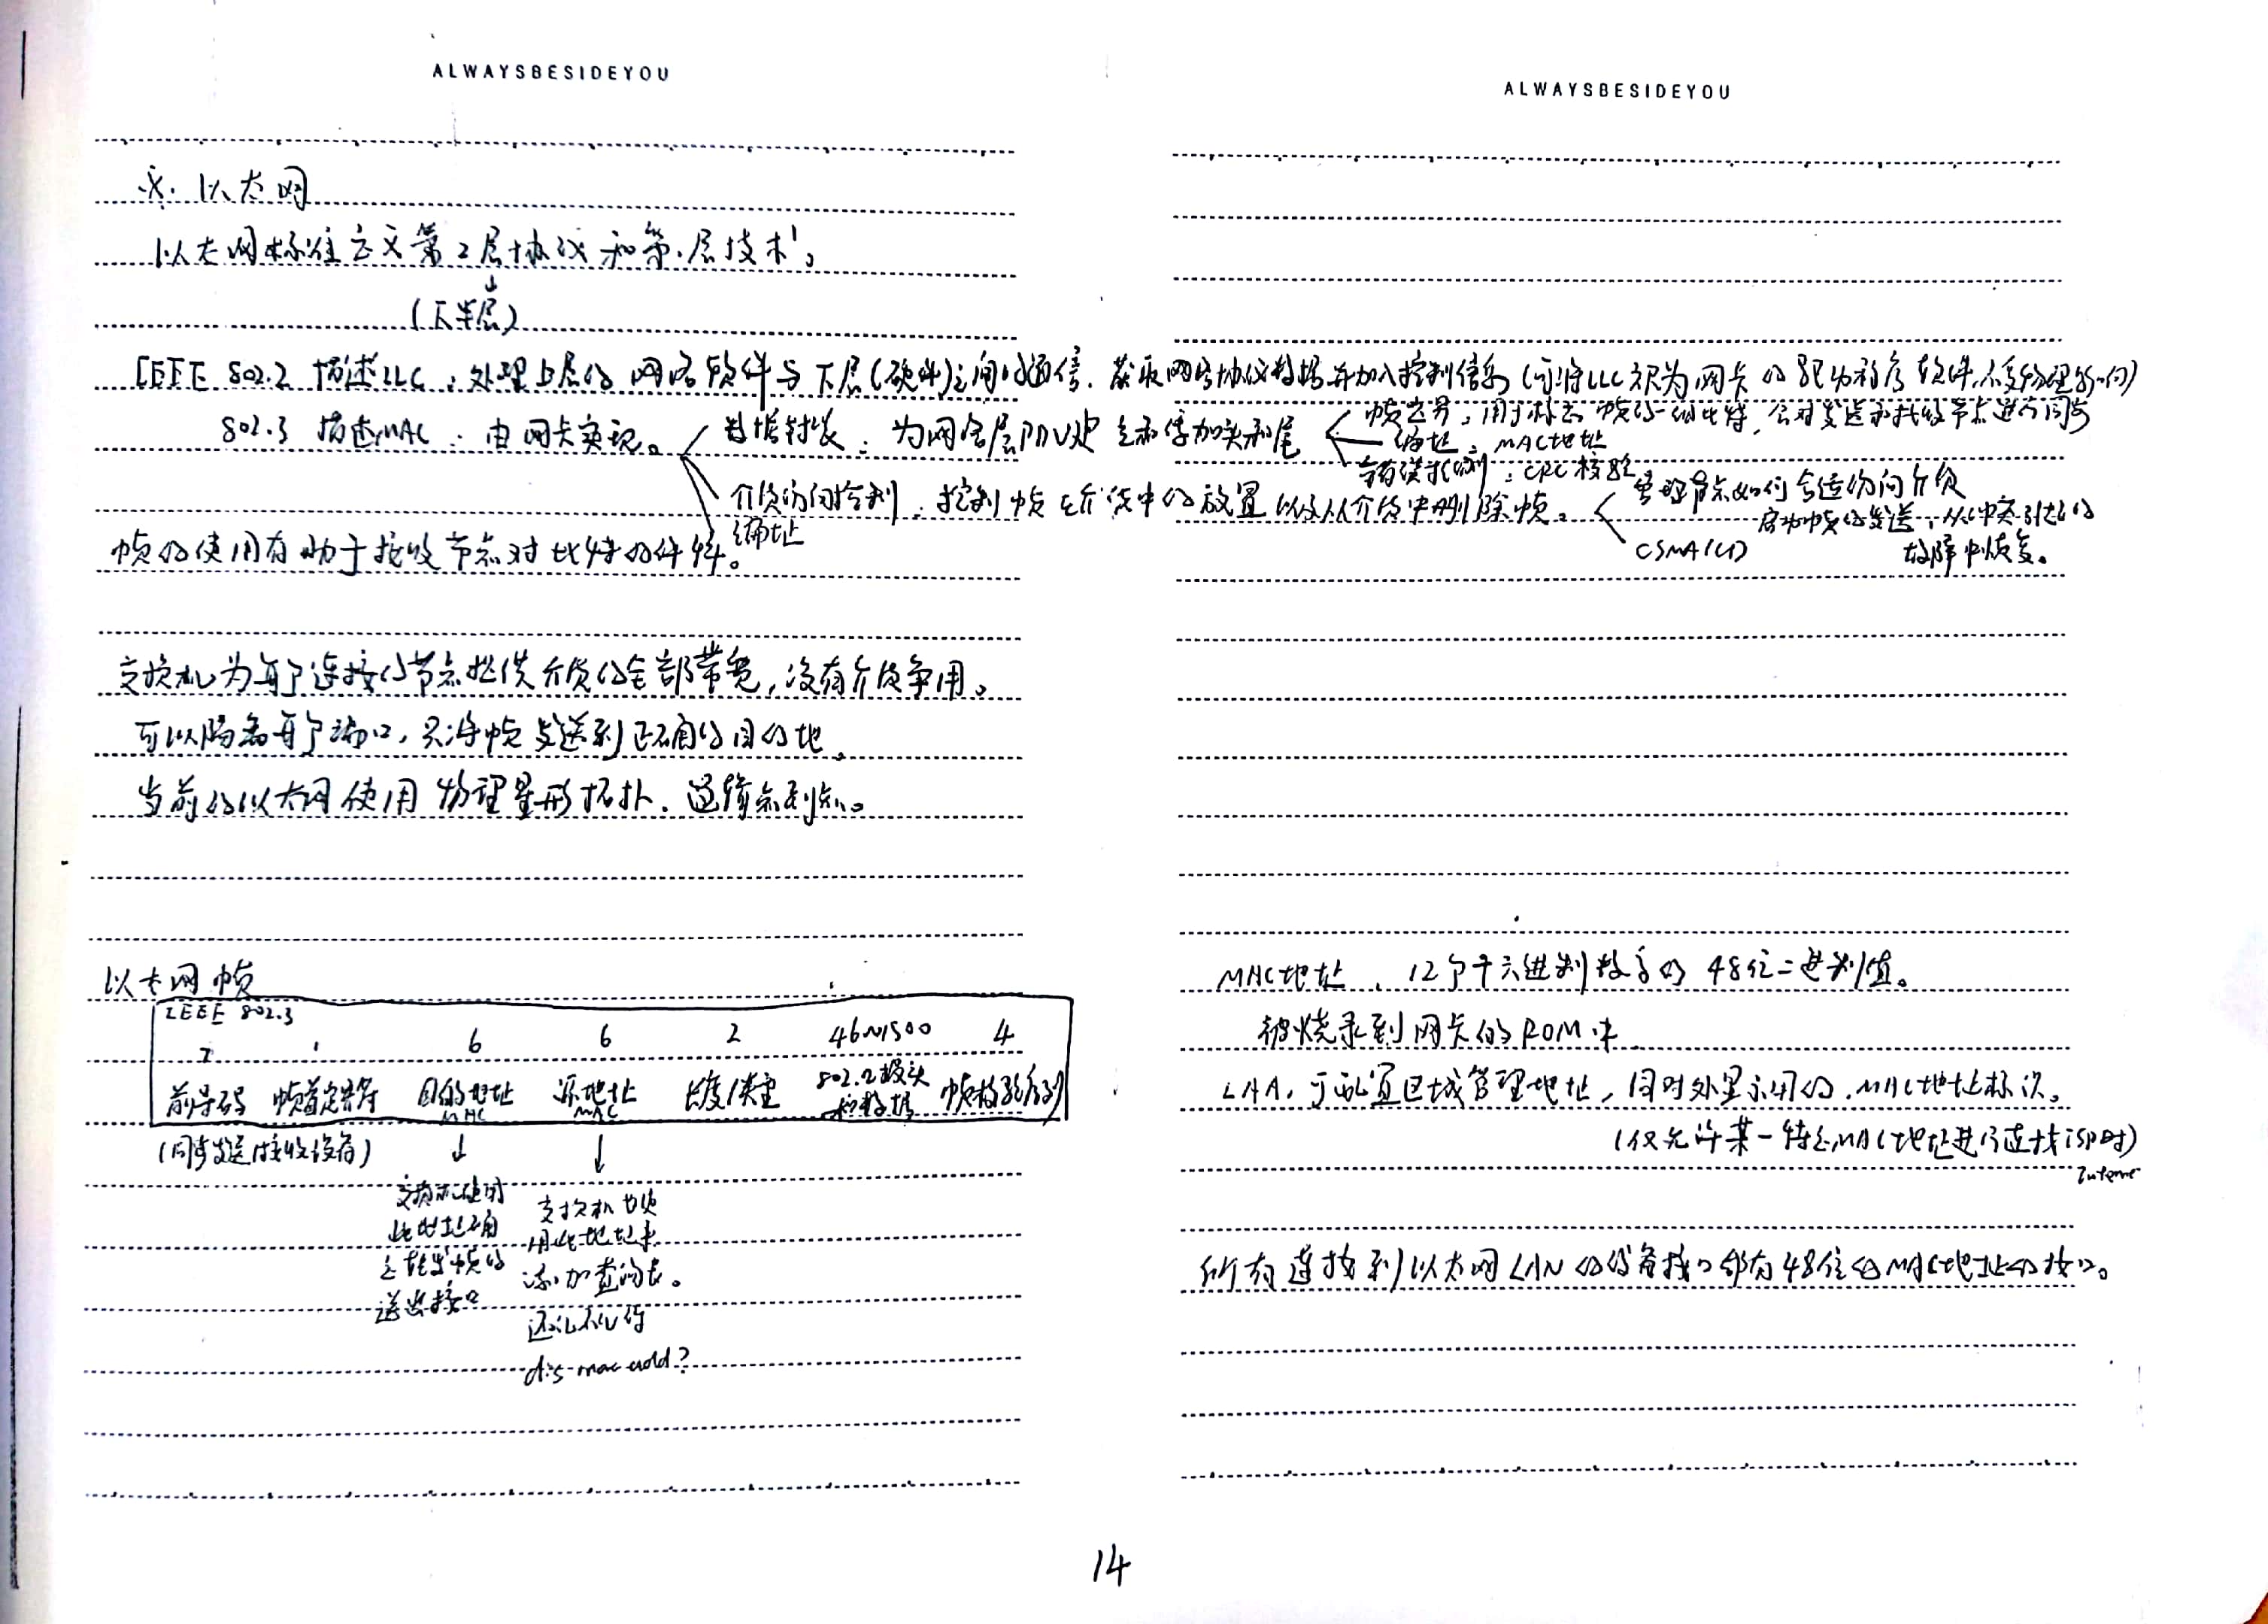 ALWAYSBESIDEYOU
ALWAYSBESIDEYOU
六. 以太网
以太网标准定义第2层协议和第1层技术。
(下半层)
IEEE 802.2 描述LLC：处理上层的网络软件与下层(硬件)之间的通信. 获取网络协议数据并加入控制信息 (可将LLC视为网卡的驱动程序软件,不受物理影响)
802.3 描述MAC：由网卡实现。
数据封装：为网络层PDU 加头和尾
帧定界：用于标志帧的一组比特, 会对发送和接收节点进行同步
编址：MAC地址
：CRC校验
介质访问控制：控制帧在介质中的放置以及从介质中删除帧。
管理节点如何合适访问介质
启动帧的发送，从冲突引起的
故障中恢复。
CSMA/CD
编址
帧的使用有助于接收节点对比特的
交换机为每个连接的节点提供介质的全部带宽, 没有介质争用。
可以隔离每个端口, 只将帧发送到正确的目的地。
当前的以太网使用物理星形拓扑. 逻辑点到点。
以太网帧
IEEE 802.3
7 1 6 6 2 46~1500 4
前导码 帧首定界符 目的地址 MAC 源地址 MAC 长度/类型 802.2报头和数据 帧校验序列
(同步发送/接收设备)
↓ ↓
交换机使用
此地址确
定转发帧的
送出接口
交换机也使
用此地址来
添加查询表。
MAC地址. 12个十六进制数字的48位二进制值。
被烧录到网卡的ROM中
LAA. 可配置区域管理地址, 同时对外显示用的.MAC地址标识。
(仅允许某一特定MAC地址进行连接ISP时)
所有连接到以太网LAN的设备接口都有48位的MAC地址的接口。
14